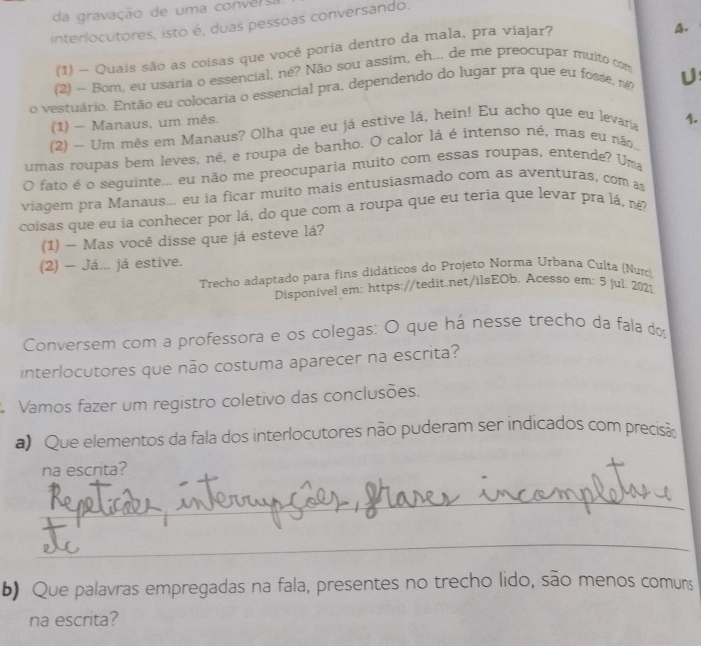 da gravação de uma conversa
interlocutores, isto é, duas pessoas conversando.
(1) — Quais são as coisas que você poria dentro da mala, pra viajar?
(2) — Bom, eu usaria o essencial, né? Não sou assim, eh... de me preocupar muito com
o vestuário. Então eu colocaria o essencial pra, dependendo do lugar pra que eu fosse, né?
(1) — Manaus, um mês.
(2) — Um mês em Manaus? Olha que eu já estive lá, hein! Eu acho que eu levaria
umas roupas bem leves, né, e roupa de banho. O calor lá é intenso né, mas eu não...
O fato é o seguinte... eu não me preocuparia muito com essas roupas, entende? Uma
viagem pra Manaus... eu ia ficar muito mais entusiasmado com as aventuras, com as
coisas que eu ia conhecer por lá, do que com a roupa que eu teria que levar pra lá, né?
(1) — Mas você disse que já esteve lá?
(2) — Já... já estive.
Trecho adaptado para fins didáticos do Projeto Norma Urbana Culta (Nurc).
Disponível em: https://tedit.net/ilsEOb. Acesso em: 5 jul. 2021
Conversem com a professora e os colegas: O que há nesse trecho da fala dos
interlocutores que não costuma aparecer na escrita?
Vamos fazer um registro coletivo das conclusões.
a) Que elementos da fala dos interlocutores não puderam ser indicados com precisão
na escrita?
Repetições, interrupções, frases incompletas e
etc
b) Que palavras empregadas na fala, presentes no trecho lido, são menos comuns
na escrita?
4.
U
1.